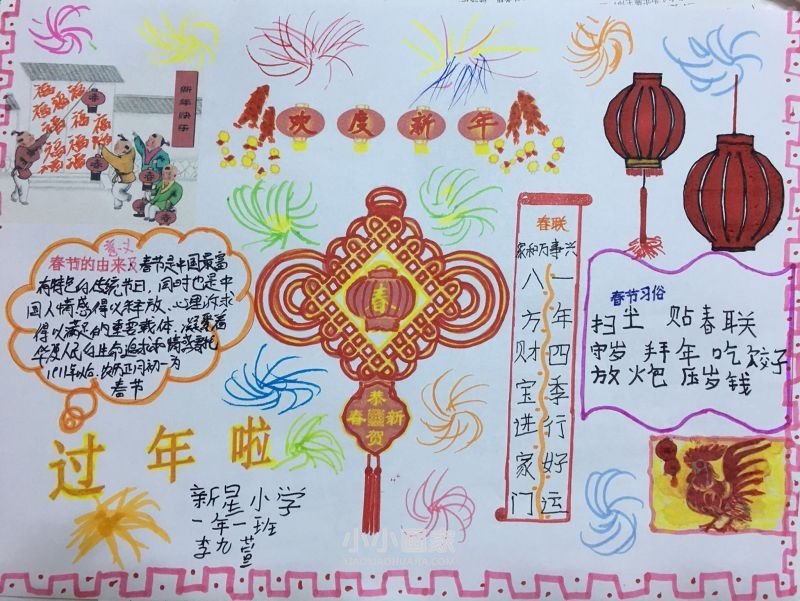 新年快乐
福福福
福福
福福
福福
福福
春
欢度新年
春节的由来及意义
春节是中国最富
有特色的传统节日，同时也是中
国人情感得以释放、心理诉求
得以满足的重要载体，凝聚着
华夏人民的生命追求和情感寄托
1911年以后，农历正月初一为
春节
春
恭
春 新
贺
春联
家和万事兴
一年四季行好运
八方财宝进家门
春节习俗
扫尘 贴春联
守岁 拜年 吃饺子
放火包 压岁钱
过年啦
新星小学
一年一班
李九萱
小小画家
XIAOXIAOHUAJIA.COM